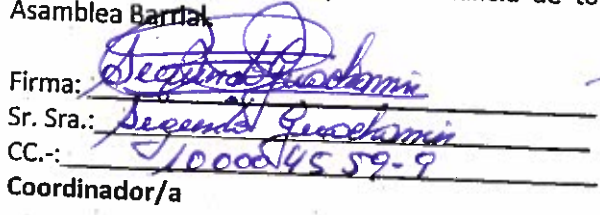 Asamblea Barrial
Firma: Segundo Guachamin
Sr. Sra.: Segundo Guachamin
CC.-: 100004559-9
Coordinador/a